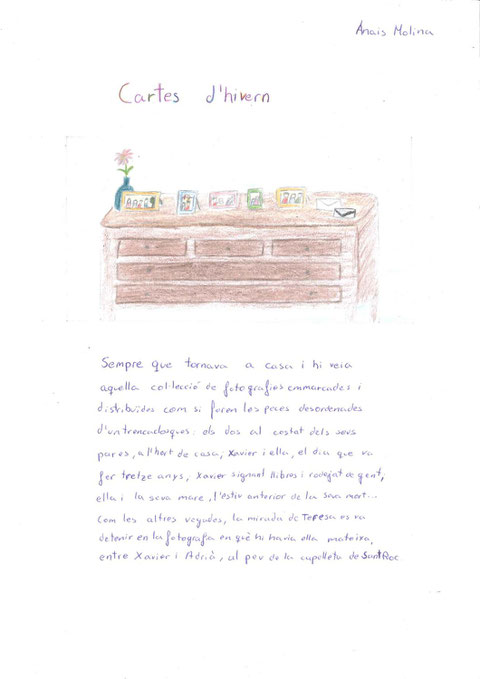 Anais Molina
Cartes d'hivern
Sempre que tornava a casa i hi veia
aquella col·lecció de fotografies emmarcades i
distribuïdes com si foren les peces desordenades
d'un trencaclosques: els dos al costat dels seus
pares, a l'hort de casa, Xavier i ella, el dia que va
fer tretze anys, Xavier signant llibres i rodejat de gent,
ella i la seva mare, l'estiu anterior de la seva mort...
Com les altres vegades, la mirada de Teresa es va
detenir en la fotografia en què hi havia ella mateixa,
entre Xavier i Adrià, al peu de la capelleta de Sant Roc.